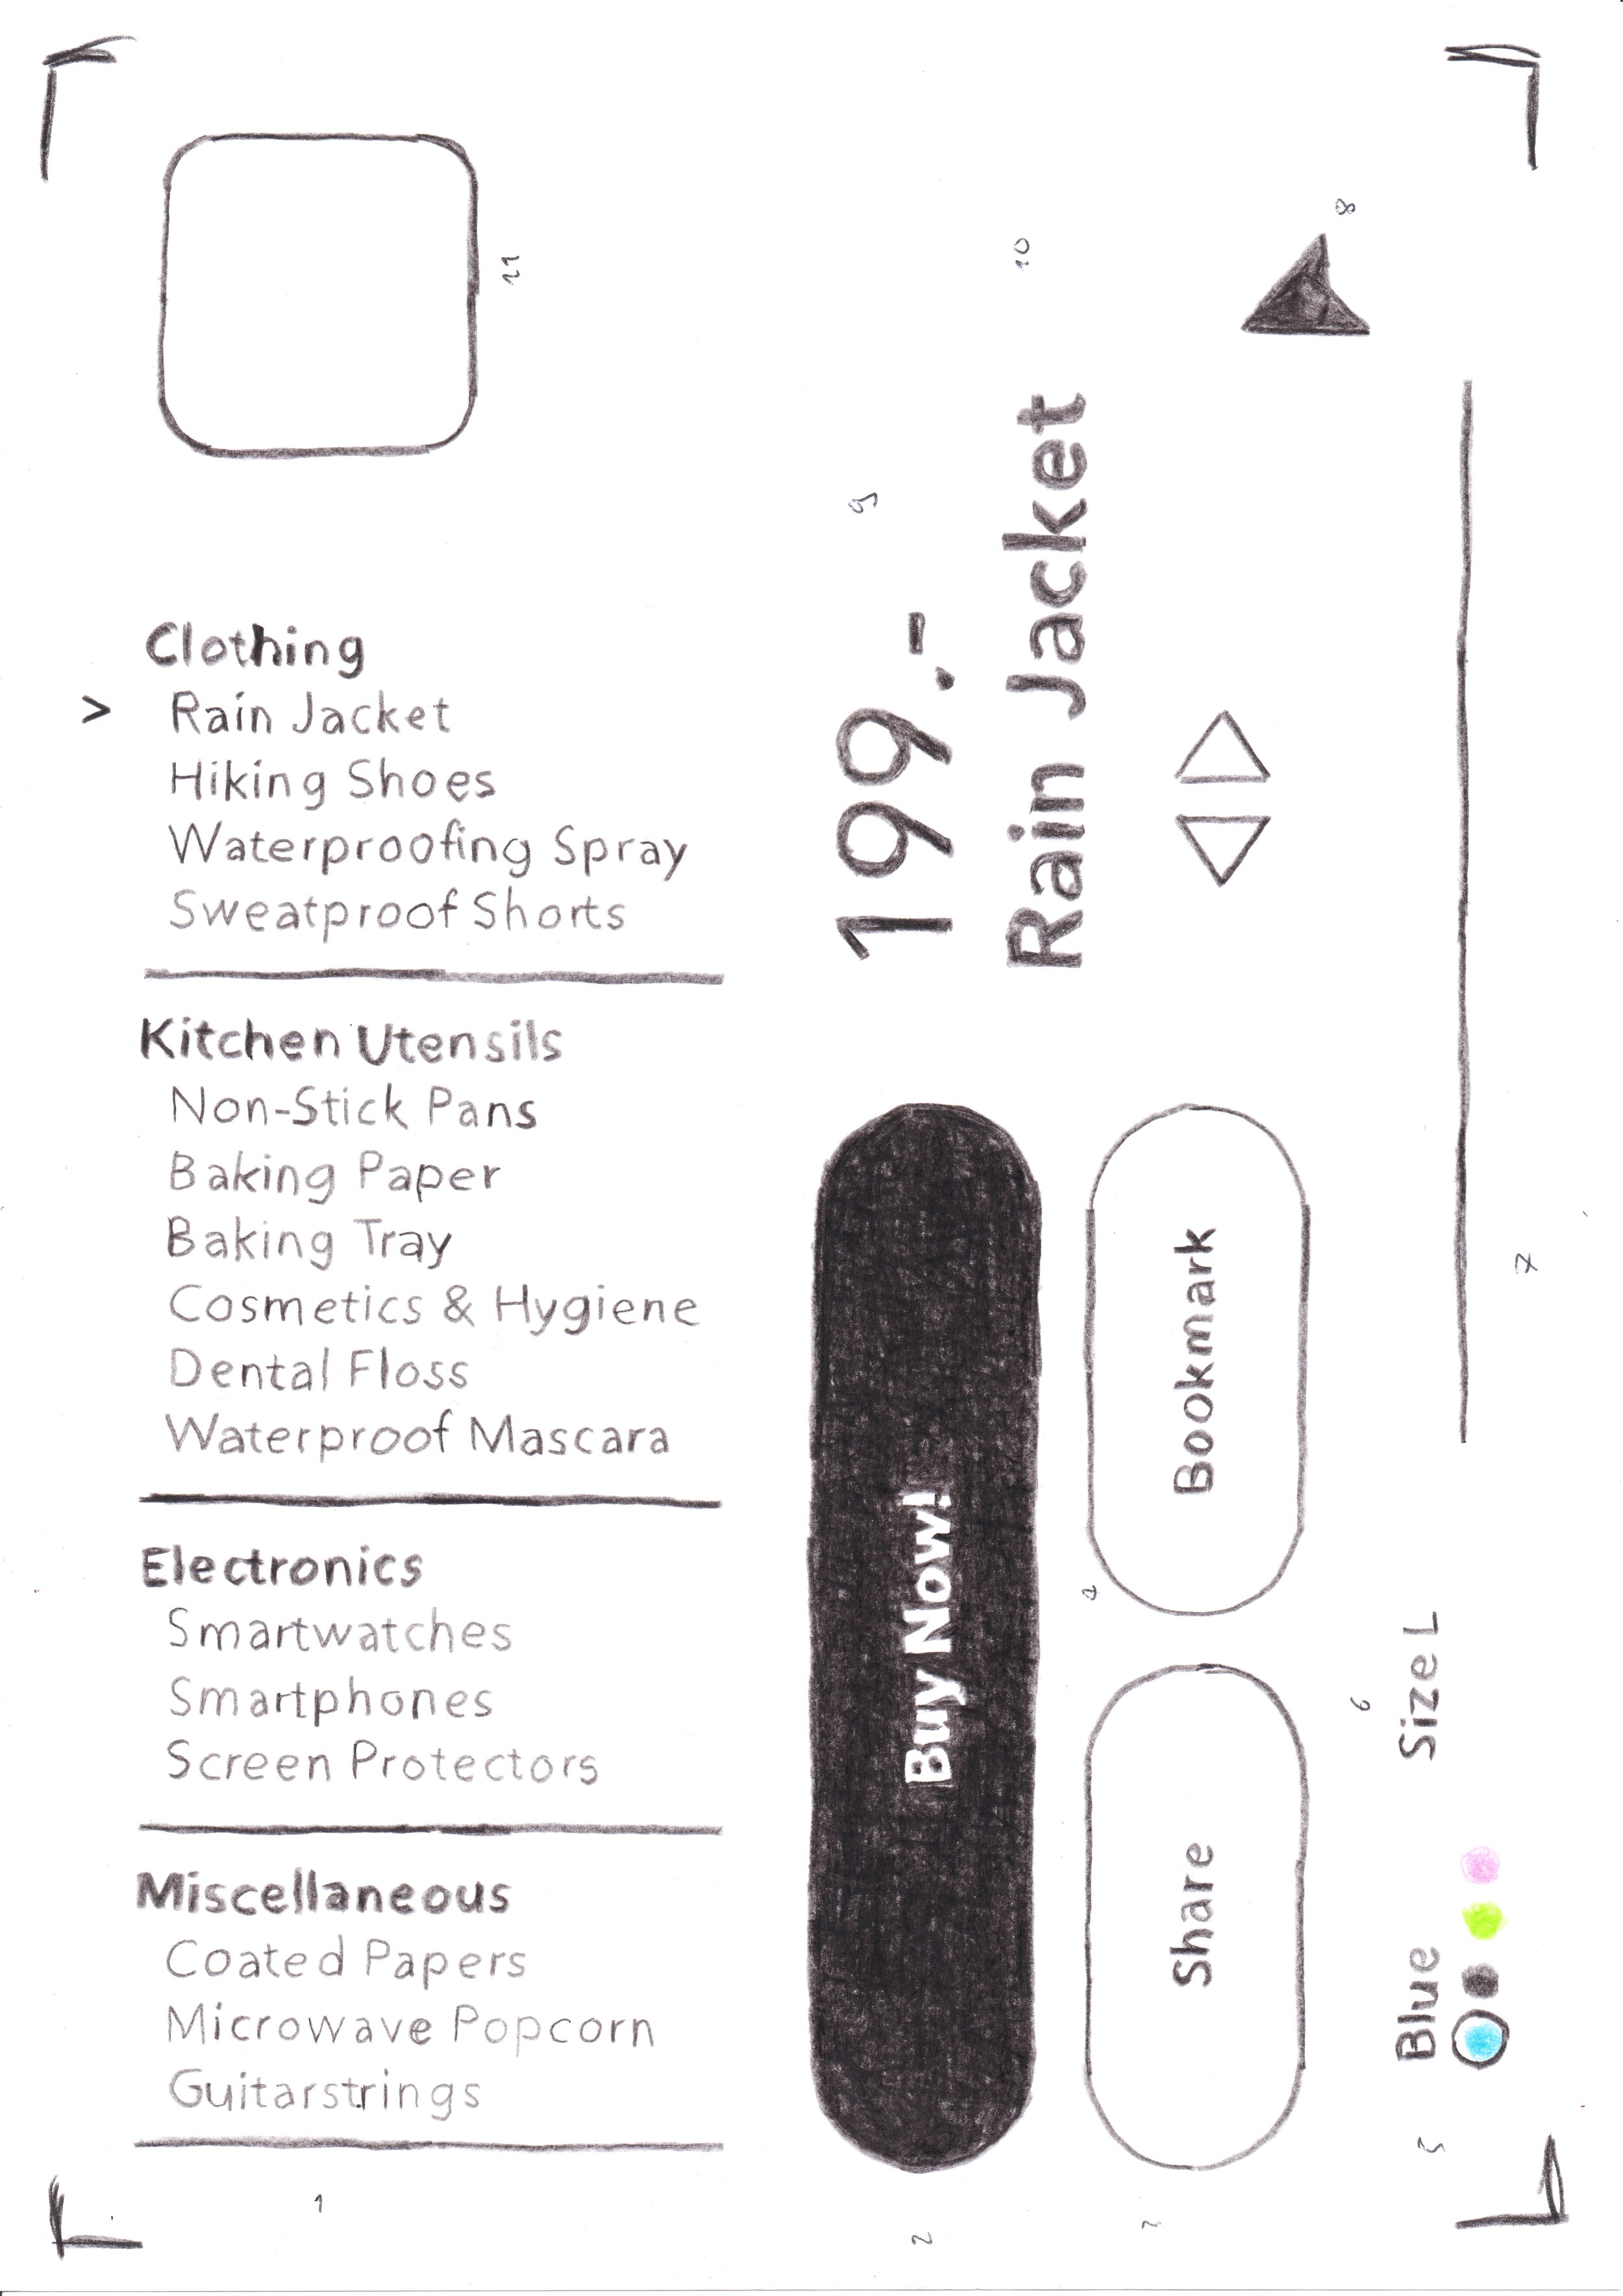 11
Clothing
> Rain Jacket
Hiking Shoes
Waterproofing Spray
Sweatproof Shorts
Kitchen Utensils
Non-Stick Pans
Baking Paper
Baking Tray
Cosmetics & Hygiene
Dental Floss
Waterproof Mascara
Electronics
Smartwatches
Smartphones
Screen Protectors
Miscellaneous
Coated Papers
Microwave Popcorn
Guitarstrings
1
199.-
9
Rain Jacket
10
8
Buy Now!
2
Share
Bookmark
4
Blue
Size L
5
6
7